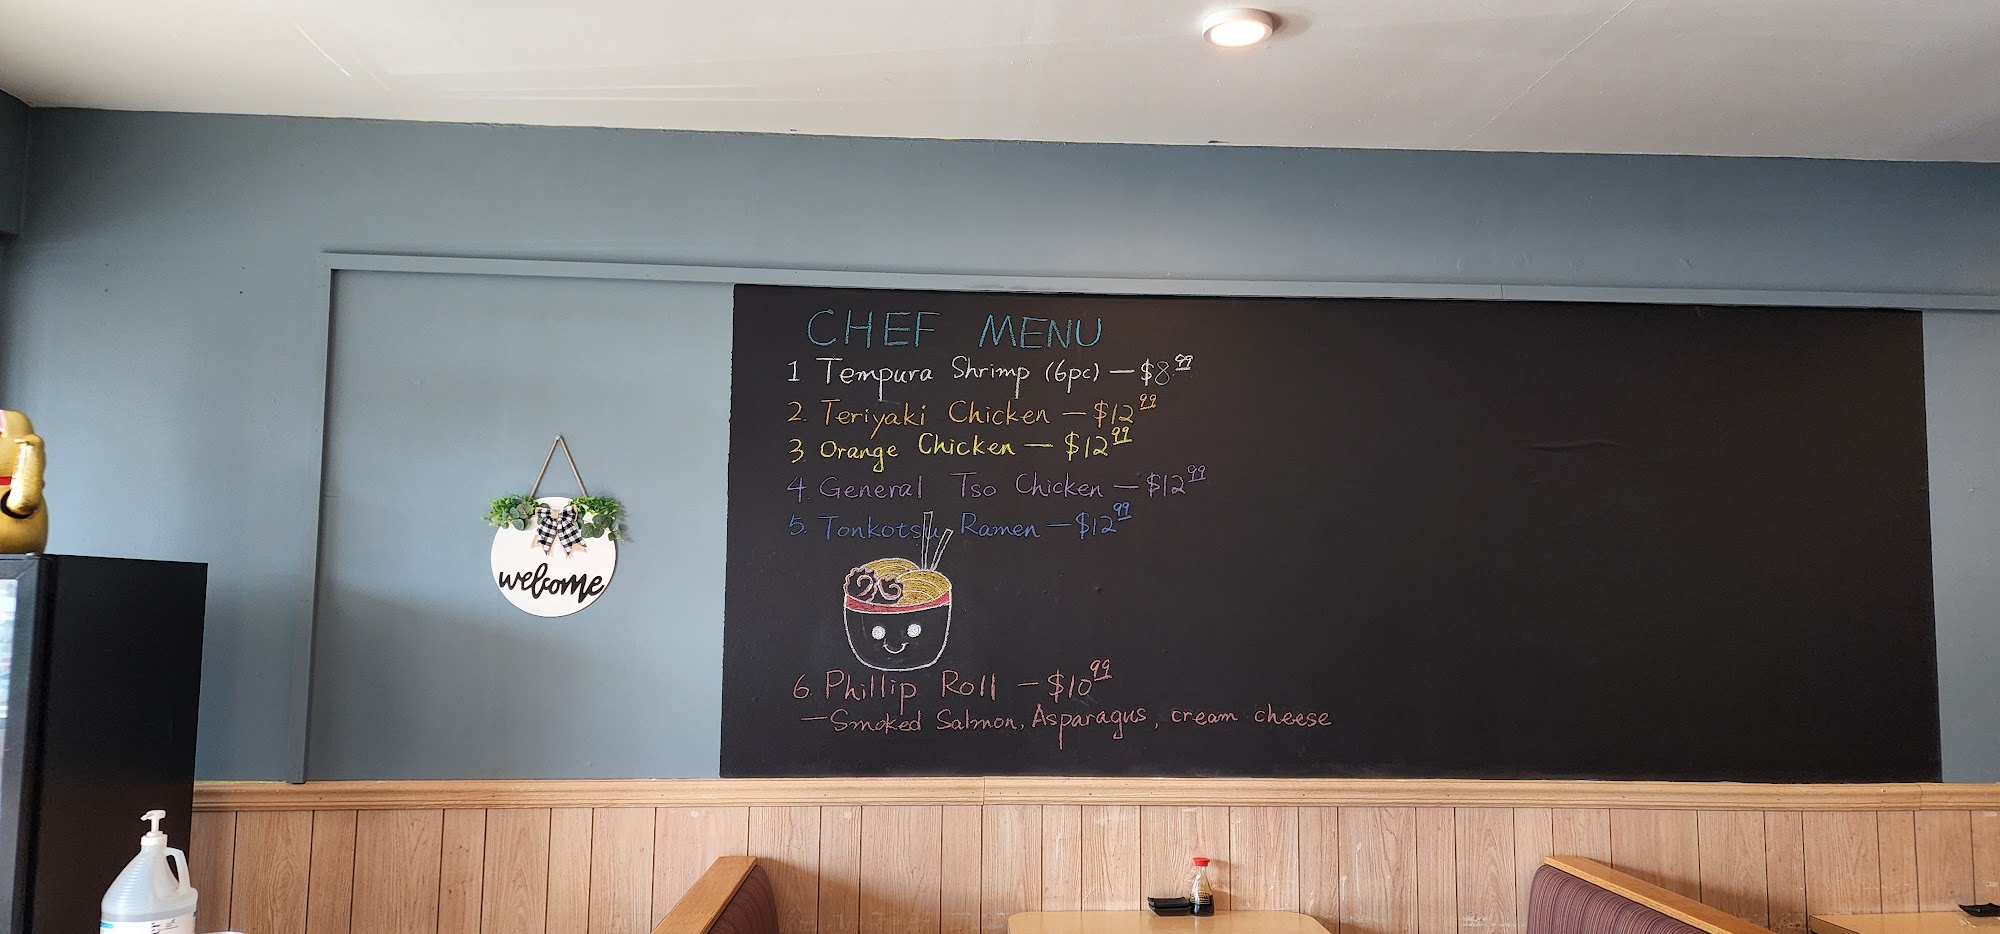 welcome
CHEF MENU
1 Tempura Shrimp (6pc) — $8.99
2. Teriyaki Chicken — $12.99
3. Orange Chicken — $12.99
4. General Tso Chicken — $12.99
5. Tonkotsu Ramen — $12.99
6. Phillip Roll — $10.99
— Smoked Salmon, Asparagus, cream cheese